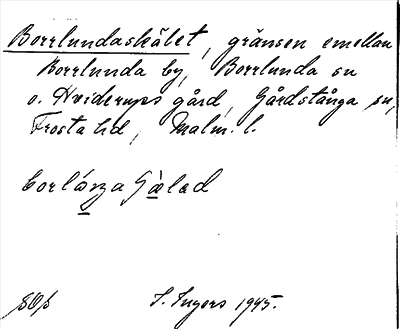 Borrlundaskälet, gränsen emellan
Borrlunda by, Borrlunda sn
o. Hviderups gård, Gårdstånga sn,
Frosta hd, Malm. l.
I. Ingers 1945.